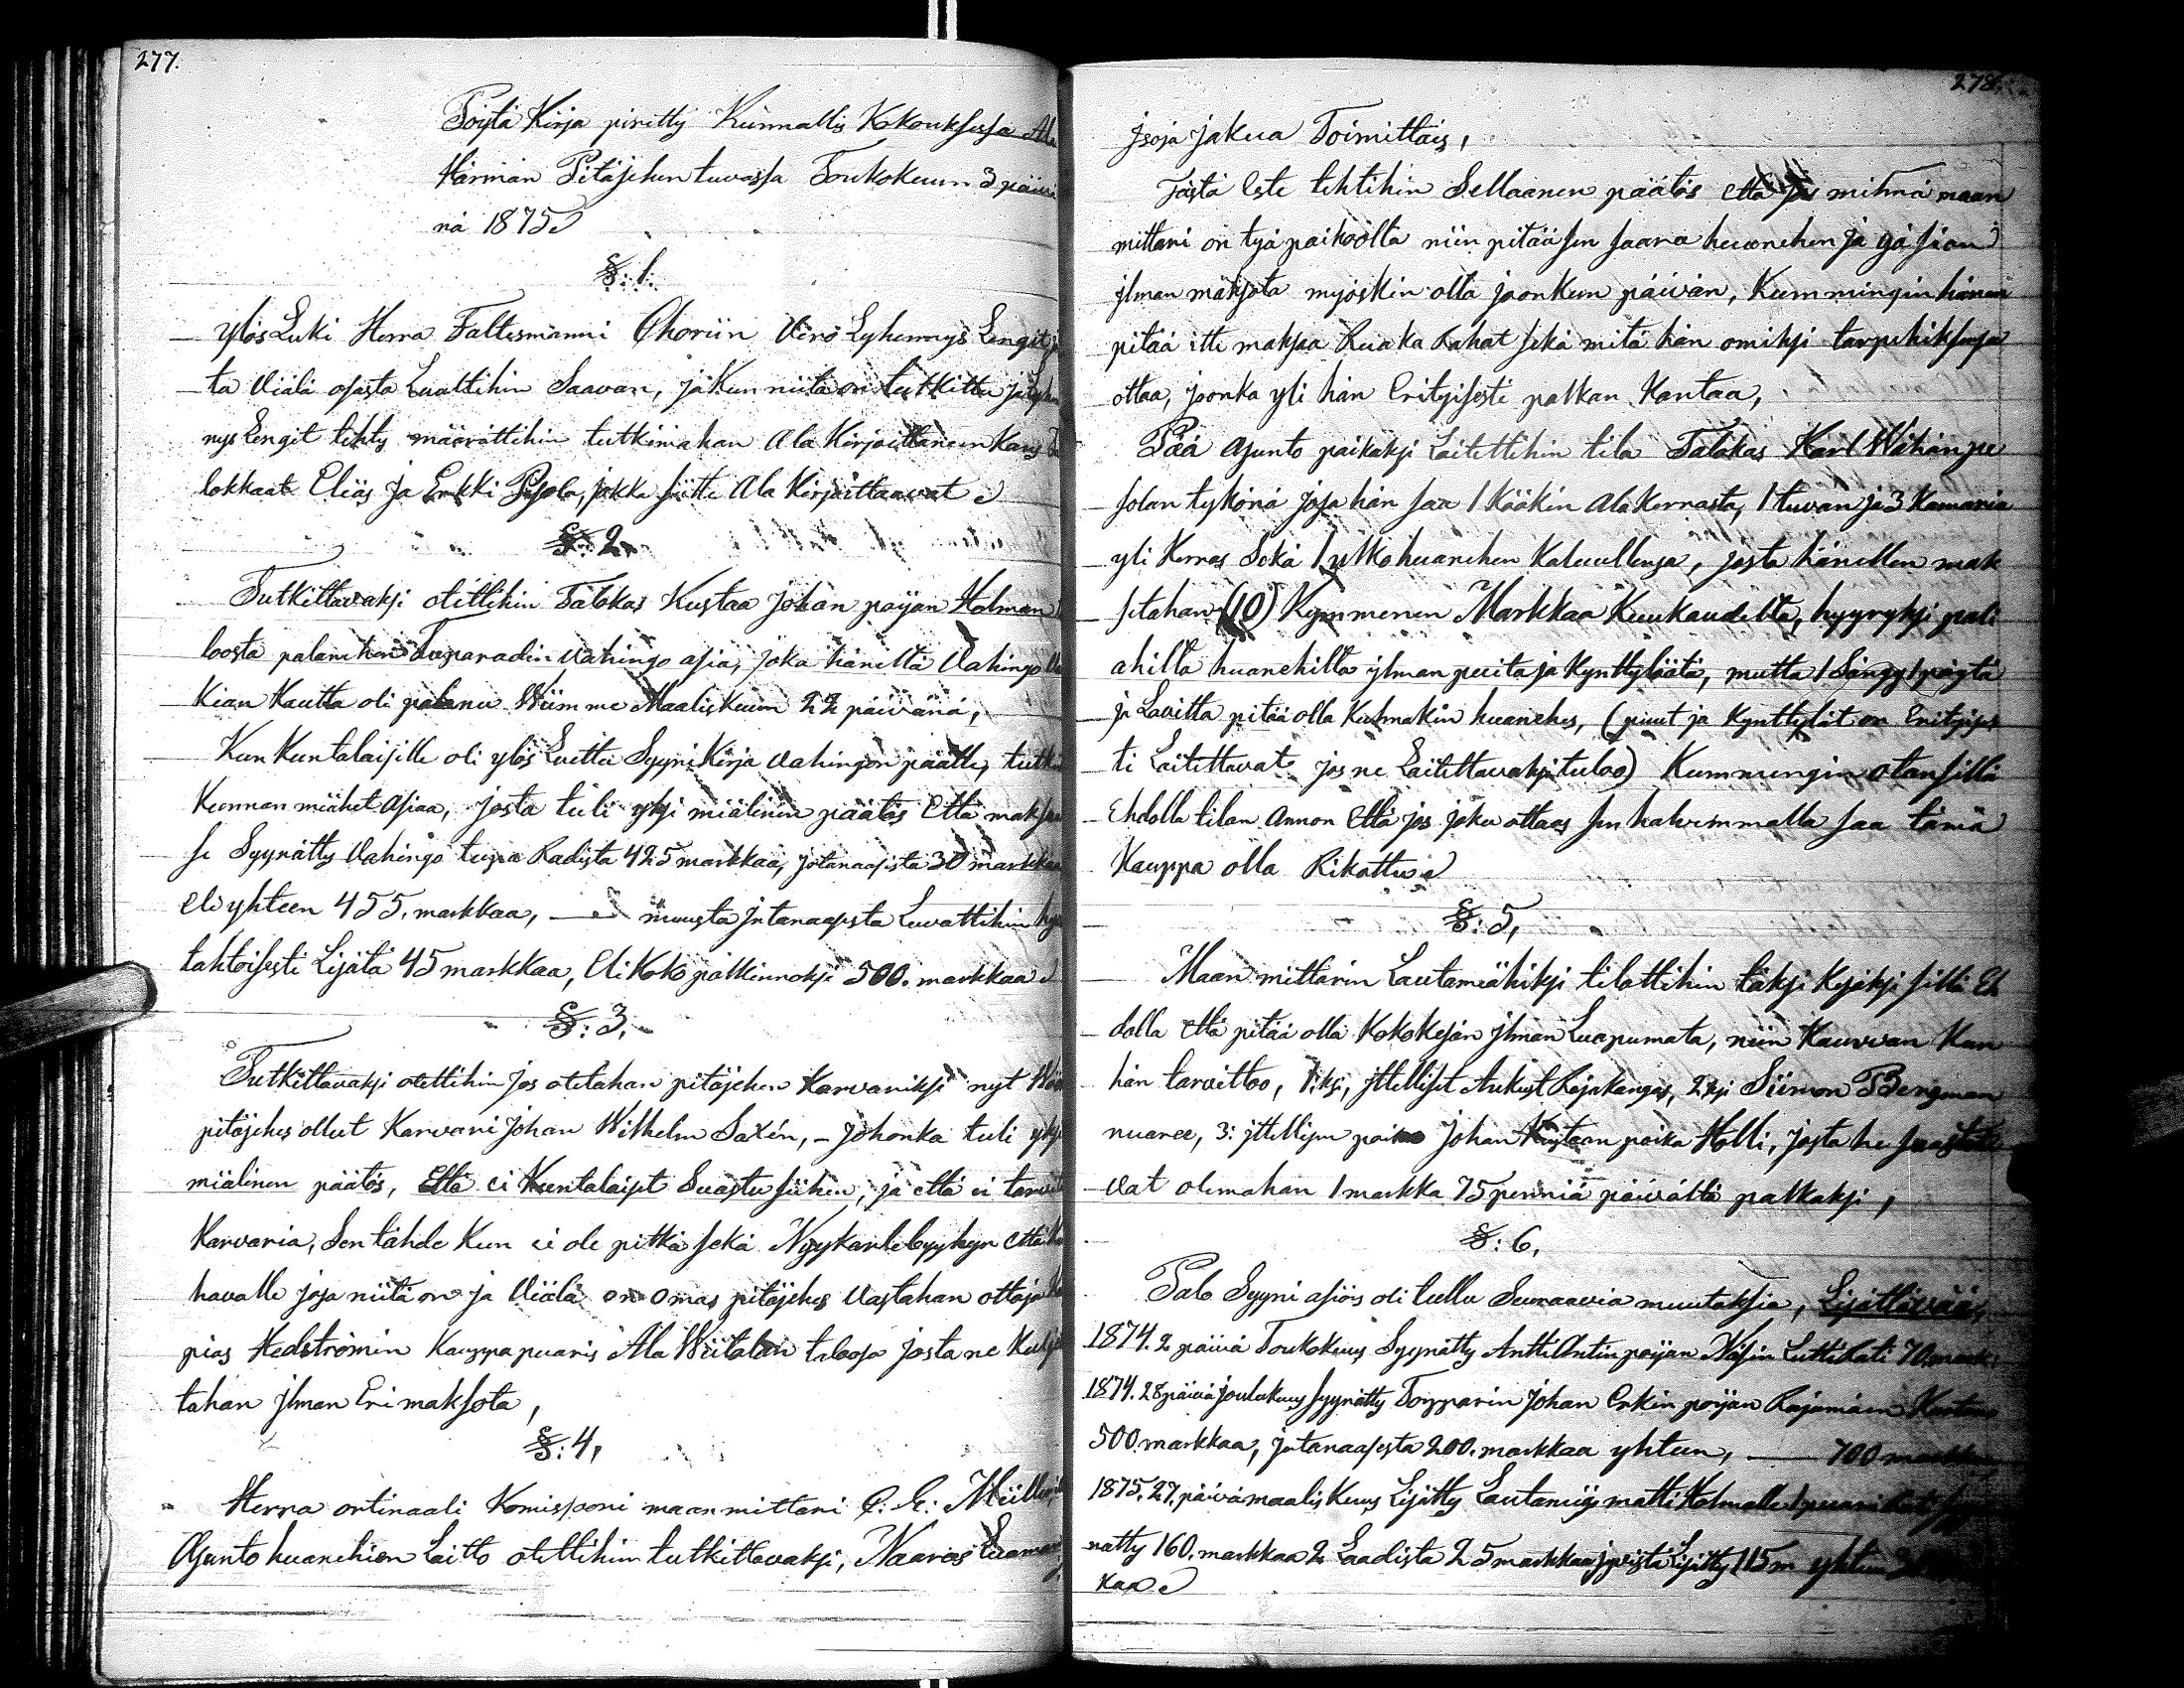 277.
Pöytä Kirja piretty Kunnallis Kokouksessa Ala
Härmän Pitäjehen tuvassa Toukokuun 3 päivä
nä 1875
§: 1.
Ylös Luki Herra Faltesmanni Chorin Vero Lyhennys Lengit
ta Viälä osasta Luattihin Saavan, ja Kun niitä on tutkittu ja
nys Lengit tehty määrättihin tutkimahan Ala Kirjoittaneen Kans
lokkaat Elias ja Erkki Pesola, jokka sütte Ala Kirjoittaavat
§: 2.
Tutkittavaksi otettihin Talokas Kustaa Johan pojan Holman
loosta palanehen vahingo asia, joka häneltä Vahingo
kian Kautta oli palanu Wiimme Maaliskuun 22 päivänä,
Kun Kuntalaisille oli ylös Luettu Syyni Kirja vahingon päälle,
Kunnan miähet asiaa, josta tuli yksi miälinen päätös Että
se Syynätty Vahingo tupa Radista 425 markkaa, jotanaasista 30 markkaa
eli yhteen 455. markkaa, — muusta jrtanaasista Luvattihin
tahtoisesti Lisätä 45 markkaa, Eli Koko palkinnoksi 500. markkaa
§: 3.
Tutkittavaksi otettihin jos otetahan pitäjehen Karvariksi nyt
pitäjehes ollut Karvari Johan Wilhelm Saxén, – johonka tuli
miälinen päätös, Että ei Kuntalaiset Suastu siihen, ja että ei
Karvaria, Sen tähde Kun ei ole pitkä sekä Nyykarlebyyhyn että
havalle josa niitä on ja Viälä on omas pitäjehes Vastahan ottaja
pias Hedströmin Kauppapuaris Ala Wiitalan taloosa josta ne
tahan jlman Eri maksota,
§: 4,
Herra ortinaali Komissooni maanmittari
Asunto huanehien Laitto otettihin tutkittavaksi, Naaras
278.
jsoja jakua Toimittais,
Tästä Este tehtihin Sellaanen päätös että jos mitnä maan
mittari on työ paikoolta niin pitää sen saara huanehen ja yö sian
jlman maksota myöskin olta joonkun päivän, Kummingin hänen
pitää itte maksaa Ruaka Rahat sekä mitä hän omiksi tarpehiksensa
ottaa, joonka yli hän Erityisesti palkan Kantaa,
Pää Asunto paikaksi Laitettihin tila Talokas Karl Wähän pe
solan tykönä josa hän saa 1 KööKin ala Kerrasta, 1 tuvan ja 3 Kamaria
yli Kerras Sekä 1 ulkohuanehen Kaluullensa, josta hänellen mak
setahan (10) Kymmenen Markkaa Kuukaudelta, hyyryksi pali
ahilta huanehilta jlman puita ja Kynttylöötä, mutta 1 Sänggy 1 pöytä
ja Lavitta pitää olla Kulmakin huanehes, (puut ja Kynttylät on Erityises
ti Laitettavat jos ne Laitettavaksi tuloo) Kummingin otan sillä
Ehdolla tilan annon Että jos joku ottaas sen halvemmalla saa tämä
Kauppa olla Rikottu
§: 5,
Maan mittarin Lautamiähiksi tilattihin täksi Kesäksi sillä Eh
dolla että pitää olla Koko Kesän jlman Luapumata, niin Kauvvan Kun
hän tarvittoo, 1:ksi, jttelliset Aukust Rajakangas, 2:ksi Siimon Bergman
nuaree, 3: jttellisen Johan Kustaan poika Holli, josta he
vat olemahan 1 markka 75 penniä päivältä palkaksi,
§: 6,
Palo Syyni asiois oli tullu Seuraavia muutoksia, Lisättävää,
1874. 2 päivä Toukokuus Syynätty Antti Antin pojan 70
1874. 28 päivä joulukuus syynätty Torpparin Johan Erkin pojan Rajamäen
500 markkaa, jrtanaasesta 200. markkaa yhteen, — 700 markkaa
1875. 27. päivä maalis Kuus Lisätty Lautamiäs matti Holmalle 1
nätty 160. markkaa 2 Laadista 25 markkaa Lisätty 115 m yhteen
kaa